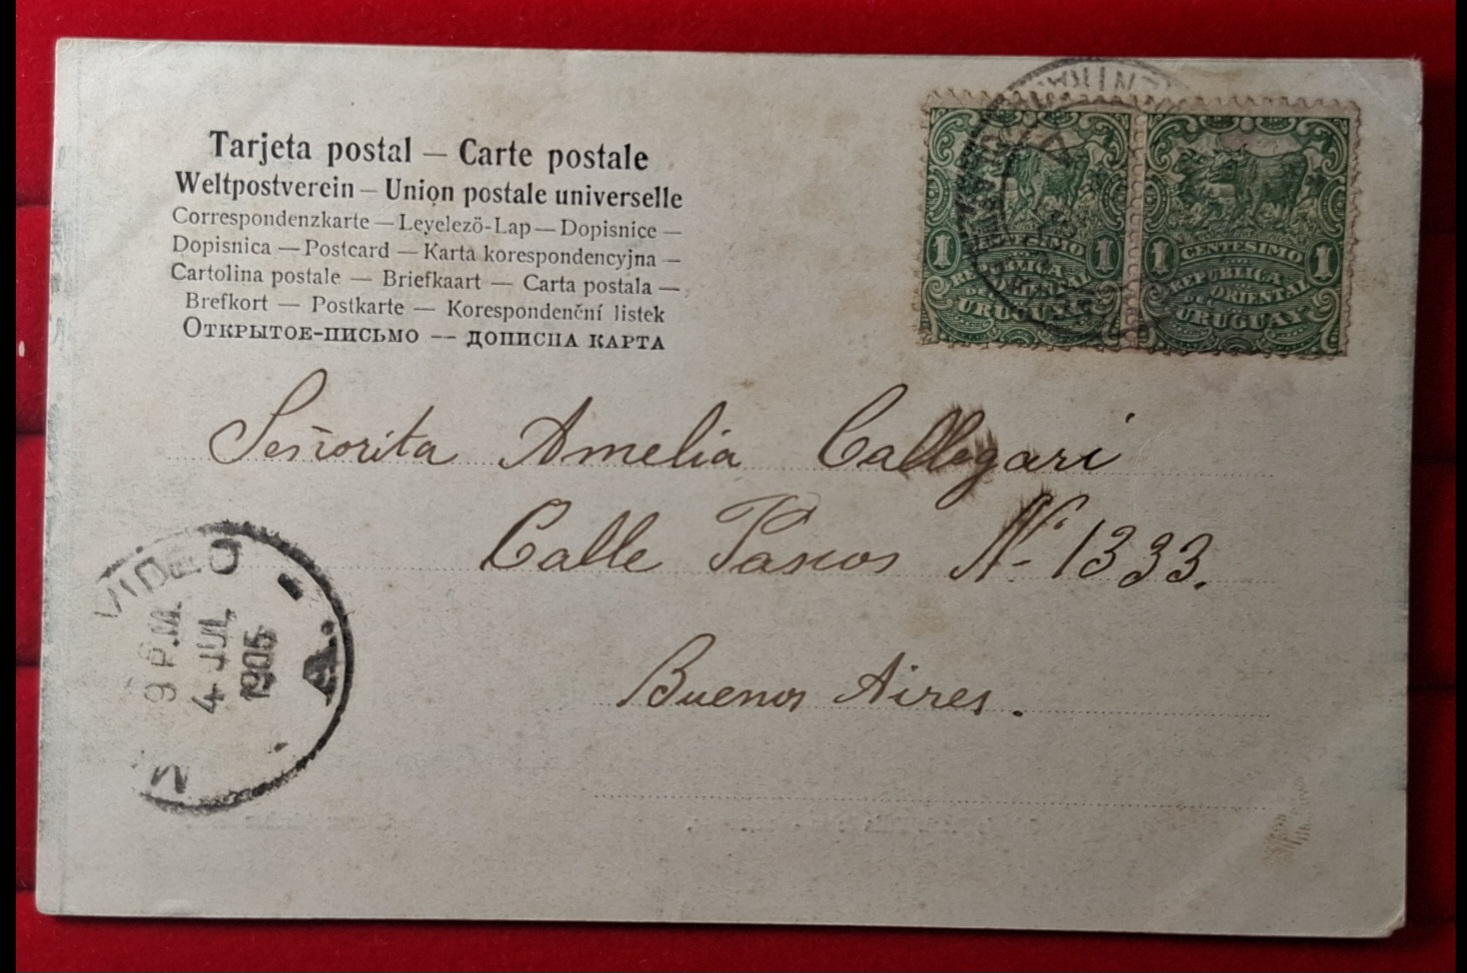 Tarjeta postal — Carte postale
Weltpostverein — Union postale universelle
Correspondenzkarte — Levelező-Lap — Dopisnice —
Dopisnica — Postcard — Karta korespondencyjna —
Cartolina postale — Briefkaart — Carta postala —
Brefkort — Postkarte — Korespondenční listek
ОТКРЫТОЕ-ПИСЬМО — ДОПИСНА КАРТА
1 CENTESIMO 1
REPUBLICA
ORIENTAL
URUGUAY
1 CENTESIMO 1
REPUBLICA
ORIENTAL
del
URUGUAY
Señorita Amelia Callegari
Calle Pascos Nº 1333.
Buenos Aires.
VIDEO
9 P.M.
4 JUL
1905
A.
M